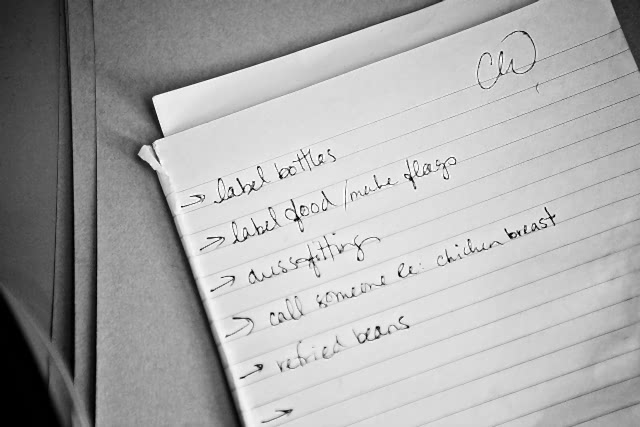 → label bottles
→ label food / make flags
→
→ call someone re: chicken breast
→ refried beans
→